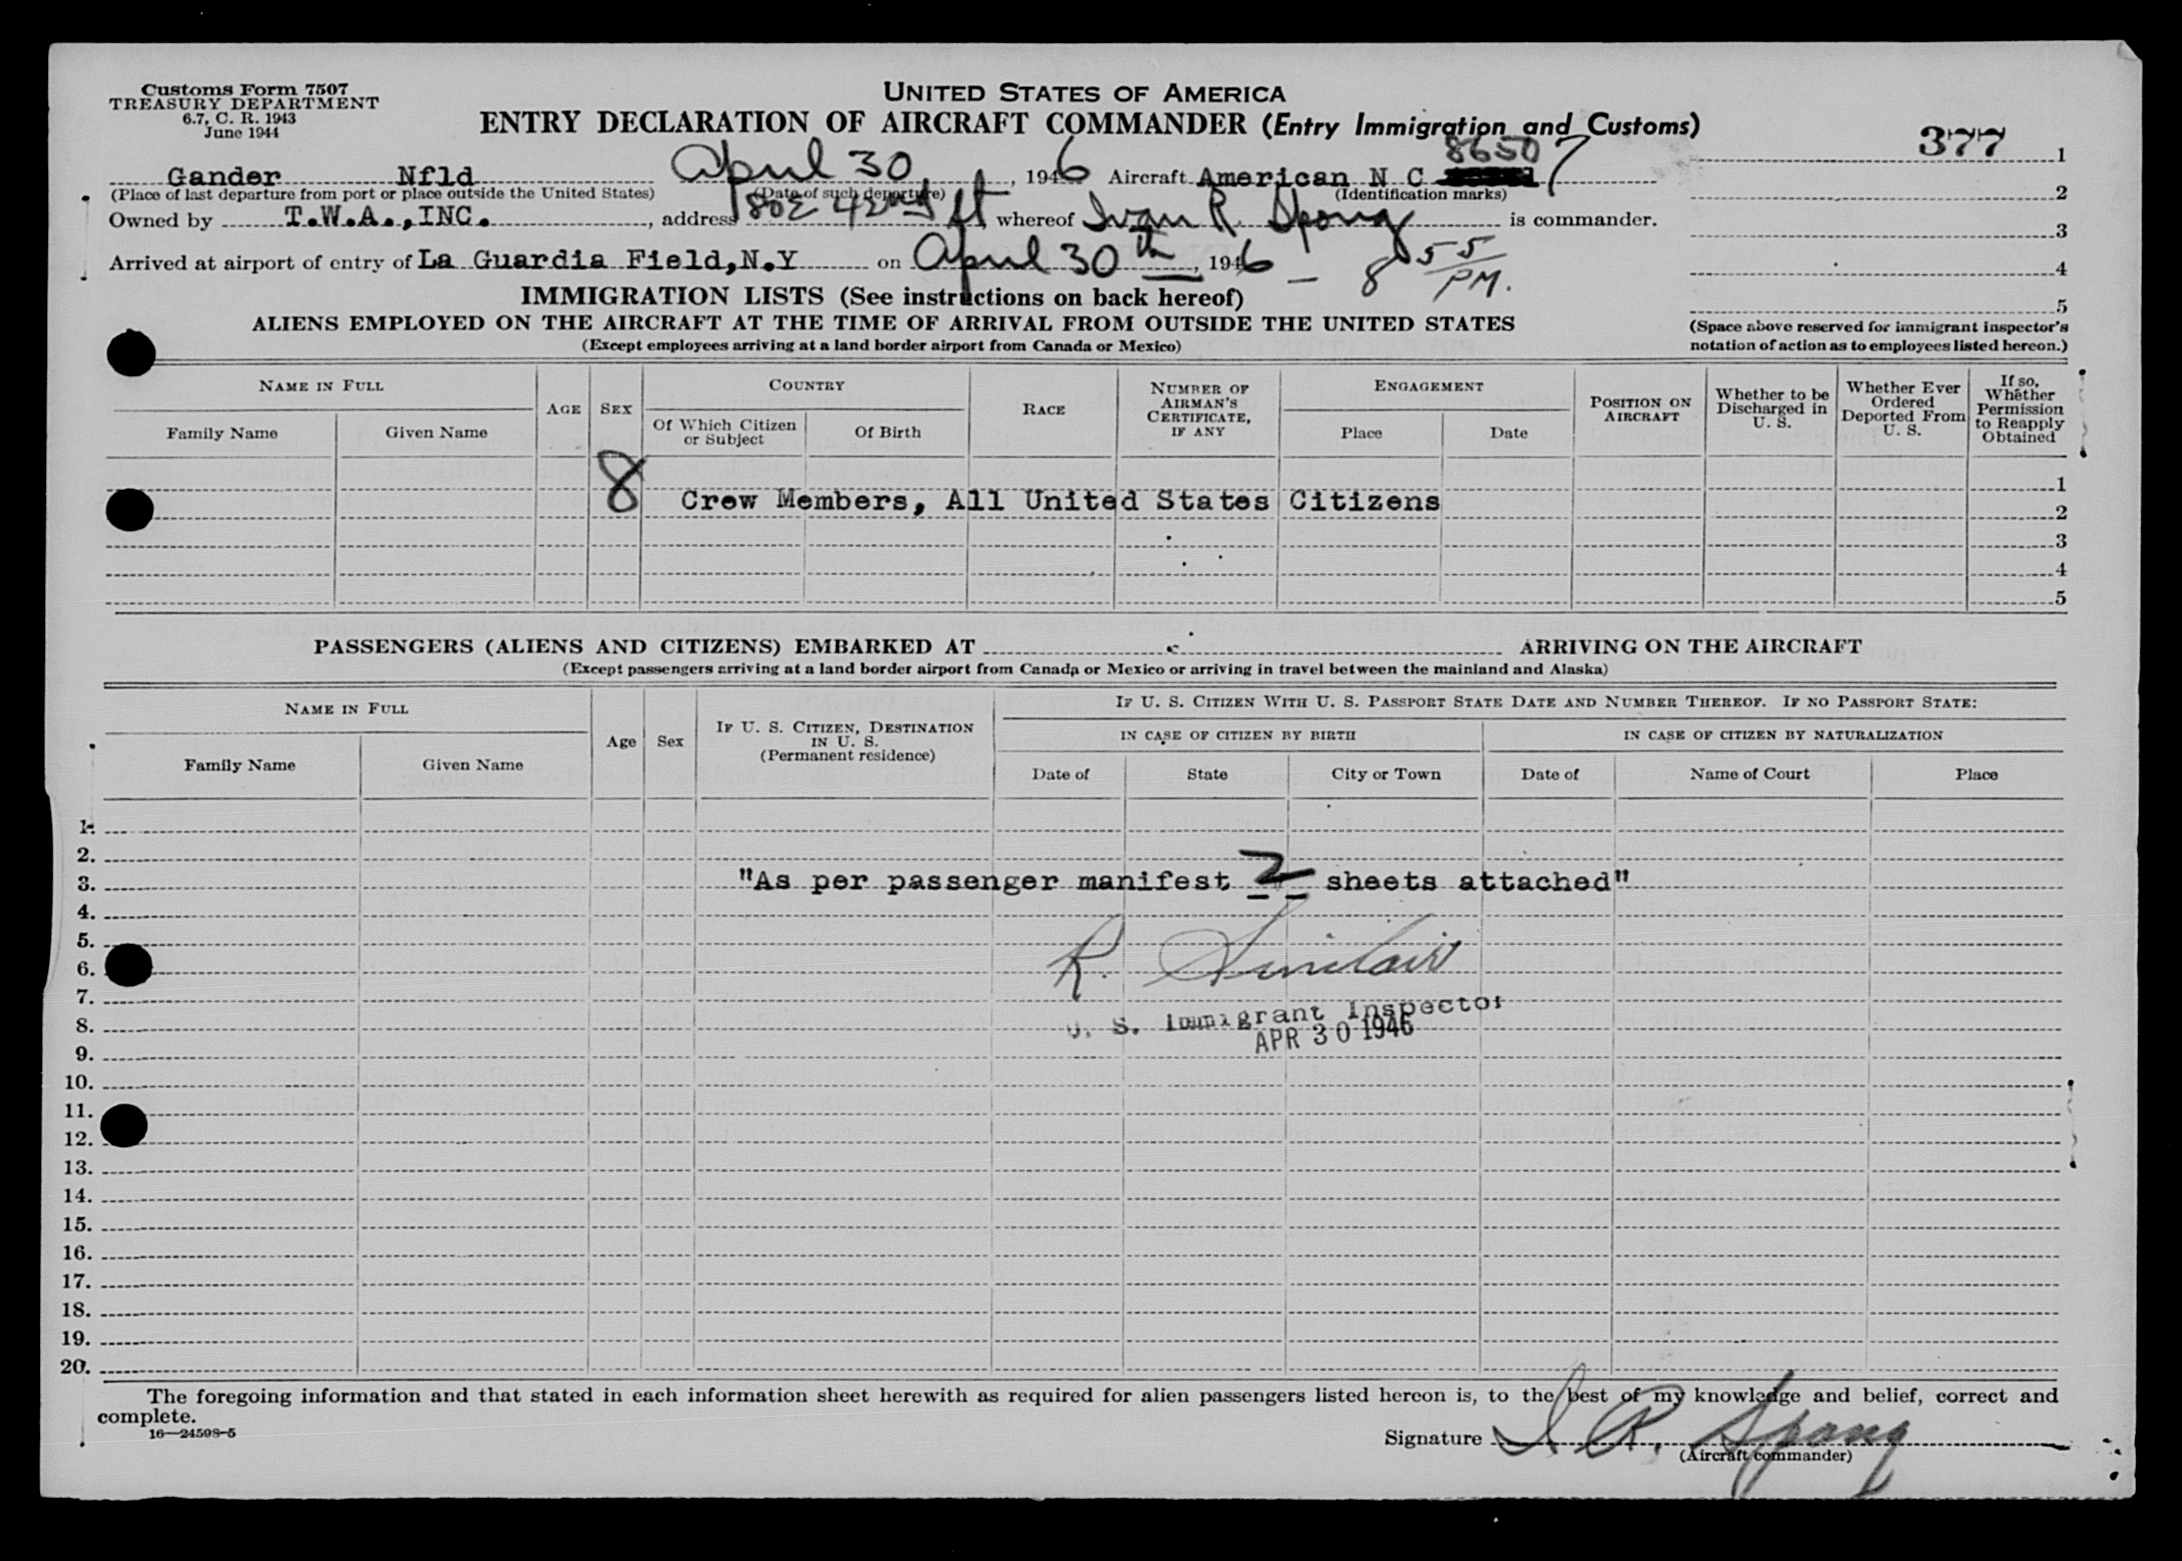 Customs Form 7507
TREASURY DEPARTMENT
6.7, C. R. 1943
June 1944
UNITED STATES OF AMERICA
ENTRY DECLARATION OF AIRCRAFT COMMANDER (Entry Immigration and Customs)
377 1
2
3
4
5
(Space above reserved for immigrant inspector's
notation of action as to employees listed hereon.)
Gander Nfld April 30, 1946 Aircraft American N C 86507
(Place of last departure from port or place outside the United States) (Date of such departure) (Identification marks)
Owned by T.W.A.,INC., address 80E 42nd St whereof Ivan R. Spong is commander.
Arrived at airport of entry of La Guardia Field,N.Y on April 30th, 1946 - 8 55 PM.
IMMIGRATION LISTS (See instructions on back hereof)
ALIENS EMPLOYED ON THE AIRCRAFT AT THE TIME OF ARRIVAL FROM OUTSIDE THE UNITED STATES
(Except employees arriving at a land border airport from Canada or Mexico)
NAME IN FULL
Family Name Given Name
AGE
SEX
COUNTRY
Of Which Citizen or Subject
Of Birth
RACE
NUMBER OF AIRMAN'S CERTIFICATE, IF ANY
ENGAGEMENT
Place Date
POSITION ON AIRCRAFT
Whether to be Discharged in U. S.
Whether Ever Ordered Deported From U. S.
If so, Whether Permission to Reapply Obtained
1
8 Crew Members, All United States Citizens
2
3
4
5
PASSENGERS (ALIENS AND CITIZENS) EMBARKED AT ARRIVING ON THE AIRCRAFT
(Except passengers arriving at a land border airport from Canada or Mexico or arriving in travel between the mainland and Alaska)
NAME IN FULL
Family Name Given Name
Age
Sex
IF U. S. CITIZEN, DESTINATION
IN U. S.
(Permanent residence)
IF U. S. CITIZEN WITH U. S. PASSPORT STATE DATE AND NUMBER THEREOF. IF NO PASSPORT STATE:
IN CASE OF CITIZEN BY BIRTH IN CASE OF CITIZEN BY NATURALIZATION
Date of State City or Town Date of Name of Court Place
1.
2.
3. "As per passenger manifest 2 sheets attached"
4.
5.
6. R. Sinclair
7.
8. U. S. Immigrant Inspector
APR 30 1946
9.
10.
11.
12.
13.
14.
15.
16.
17.
18.
19.
20.
The foregoing information and that stated in each information sheet herewith as required for alien passengers listed hereon is, to the best of my knowledge and belief, correct and
complete.
16—24598-5
Signature I. R. Spong
(Aircraft commander)